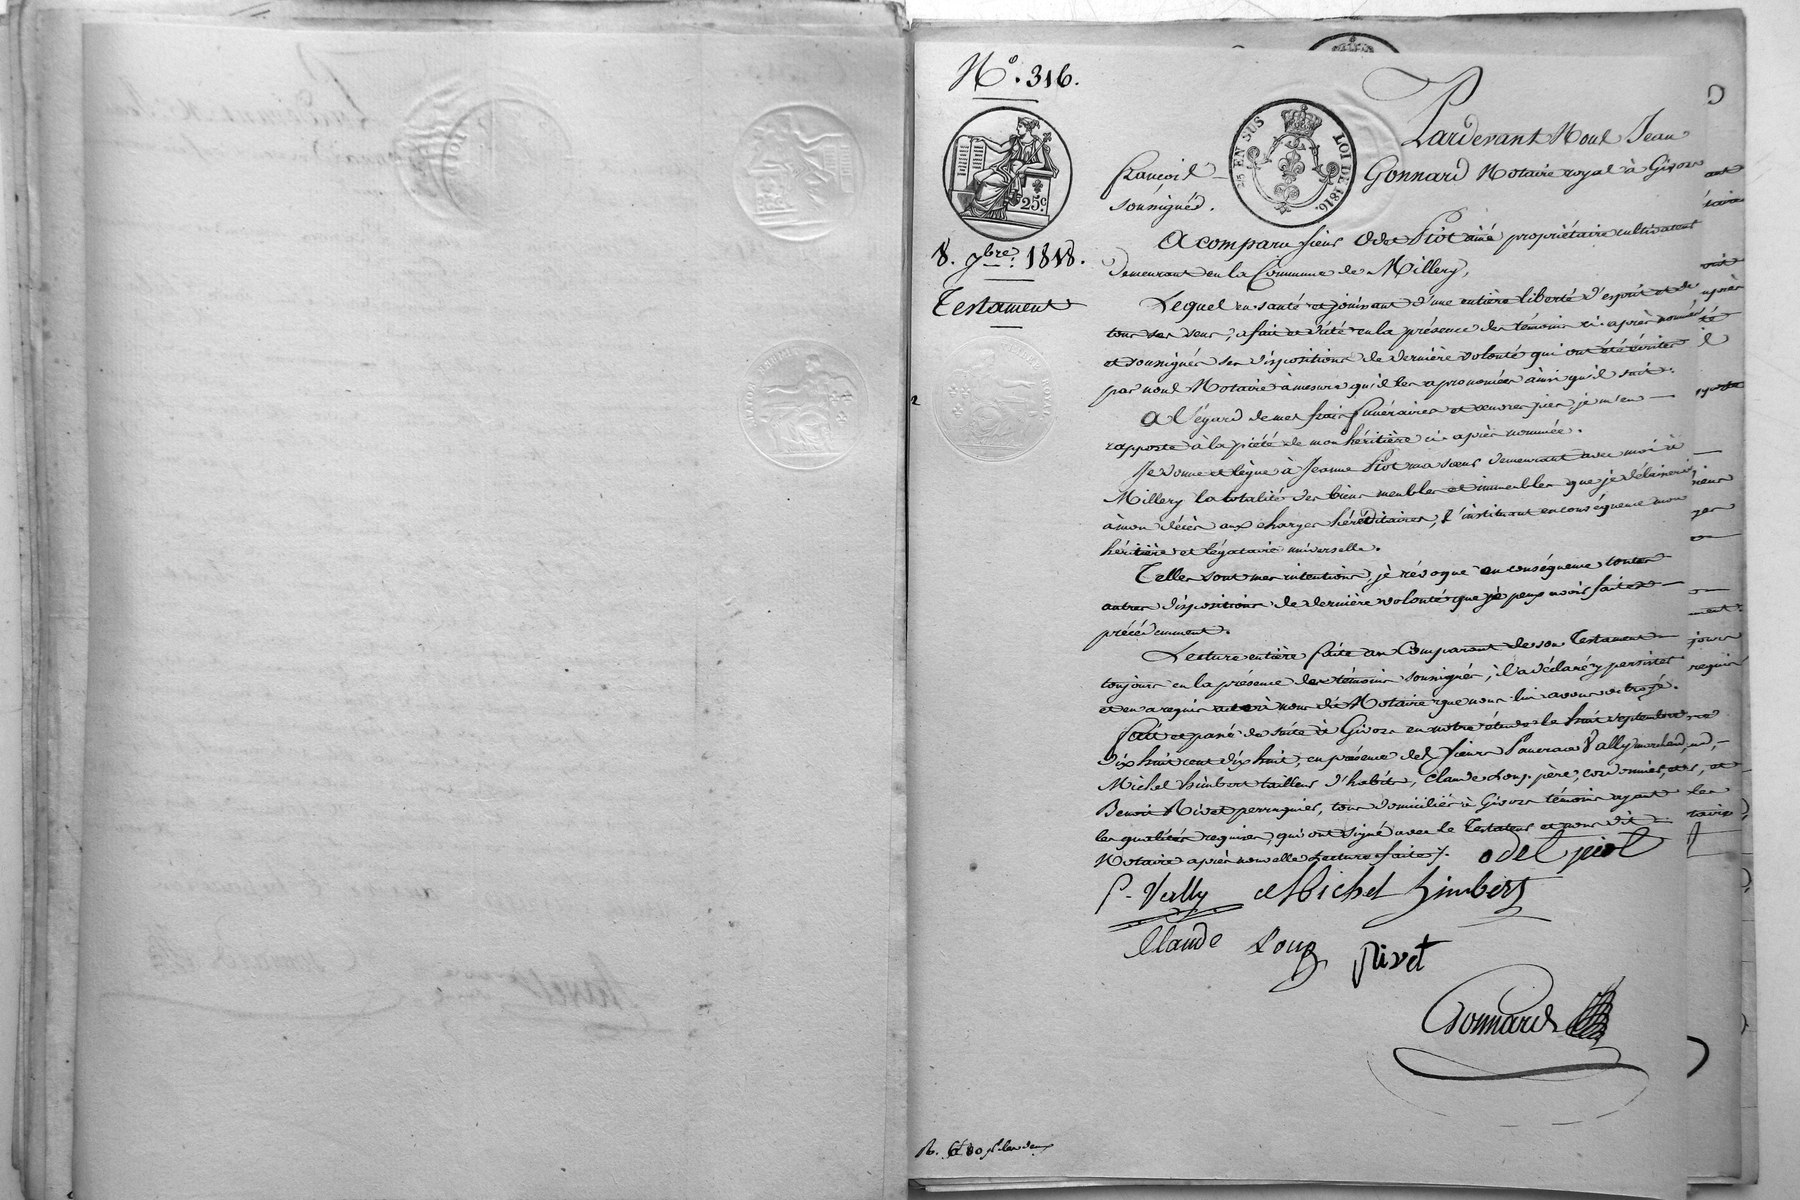 N.° 316.
25 EN SUS
LOI DE 1816.
25.c
8. 7bre. 1818.
Testament
Pardevant Nous Jean
françois Gonnard Notaire royal à Givors
soussigné.
A comparu sieur Odet Piot ainé propriétaire cultivateur
demeurant en la Commune de Millery,
Lequel en santé et jouissant d'une entière liberté d'esprit et de
tous ses sens, a fait et dicté en la présence des témoins ci-après nommés
et soussignés ses dispositions de dernière volonté qui ont été écrites
par nous Notaire à mesure qu'il les a prononcées ainsi qu'il suit.
A l'égard de mes frais funéraires et œuvres pies, je m'en
rapporte à la piété de mon héritière ci-après nommée.
Je donne et lègue à Jeanne Piot ma sœur demeurant avec moi à
Millery la totalité des biens meubles et immeubles que je délaisserai
à mon décès aux charges héréditaires, l'instituant en conséquence mon
héritière et légataire universelle.
Telles sont mes intentions, je révoque en conséquence toutes
autres dispositions de dernière volonté que je peux avoir faites
précédemment.
Lecture entière faite au Comparant de son Testament
toujours en la présence des témoins soussignés, il a déclaré y persister
et en a requis acte à nous dit Notaire que nous lui avons octroyé.
fait et passé de suite à Givors en notre étude le huit septembre
dix huit cent dix huit, en présence des sieurs Pancrace Vally marchand,
Michel himbert tailleur d'habits, Claude Loup père, cordonnier, et
Benoit Rivet perruquier, tous domiciliés à Givors témoins ayant
les qualités requises, qui ont signé avec le Testateur et nous dit
Notaire après nouvelle Lecture faite. odet piot
P. Vally Michel himbert
Claude Loup Rivet
Gonnard